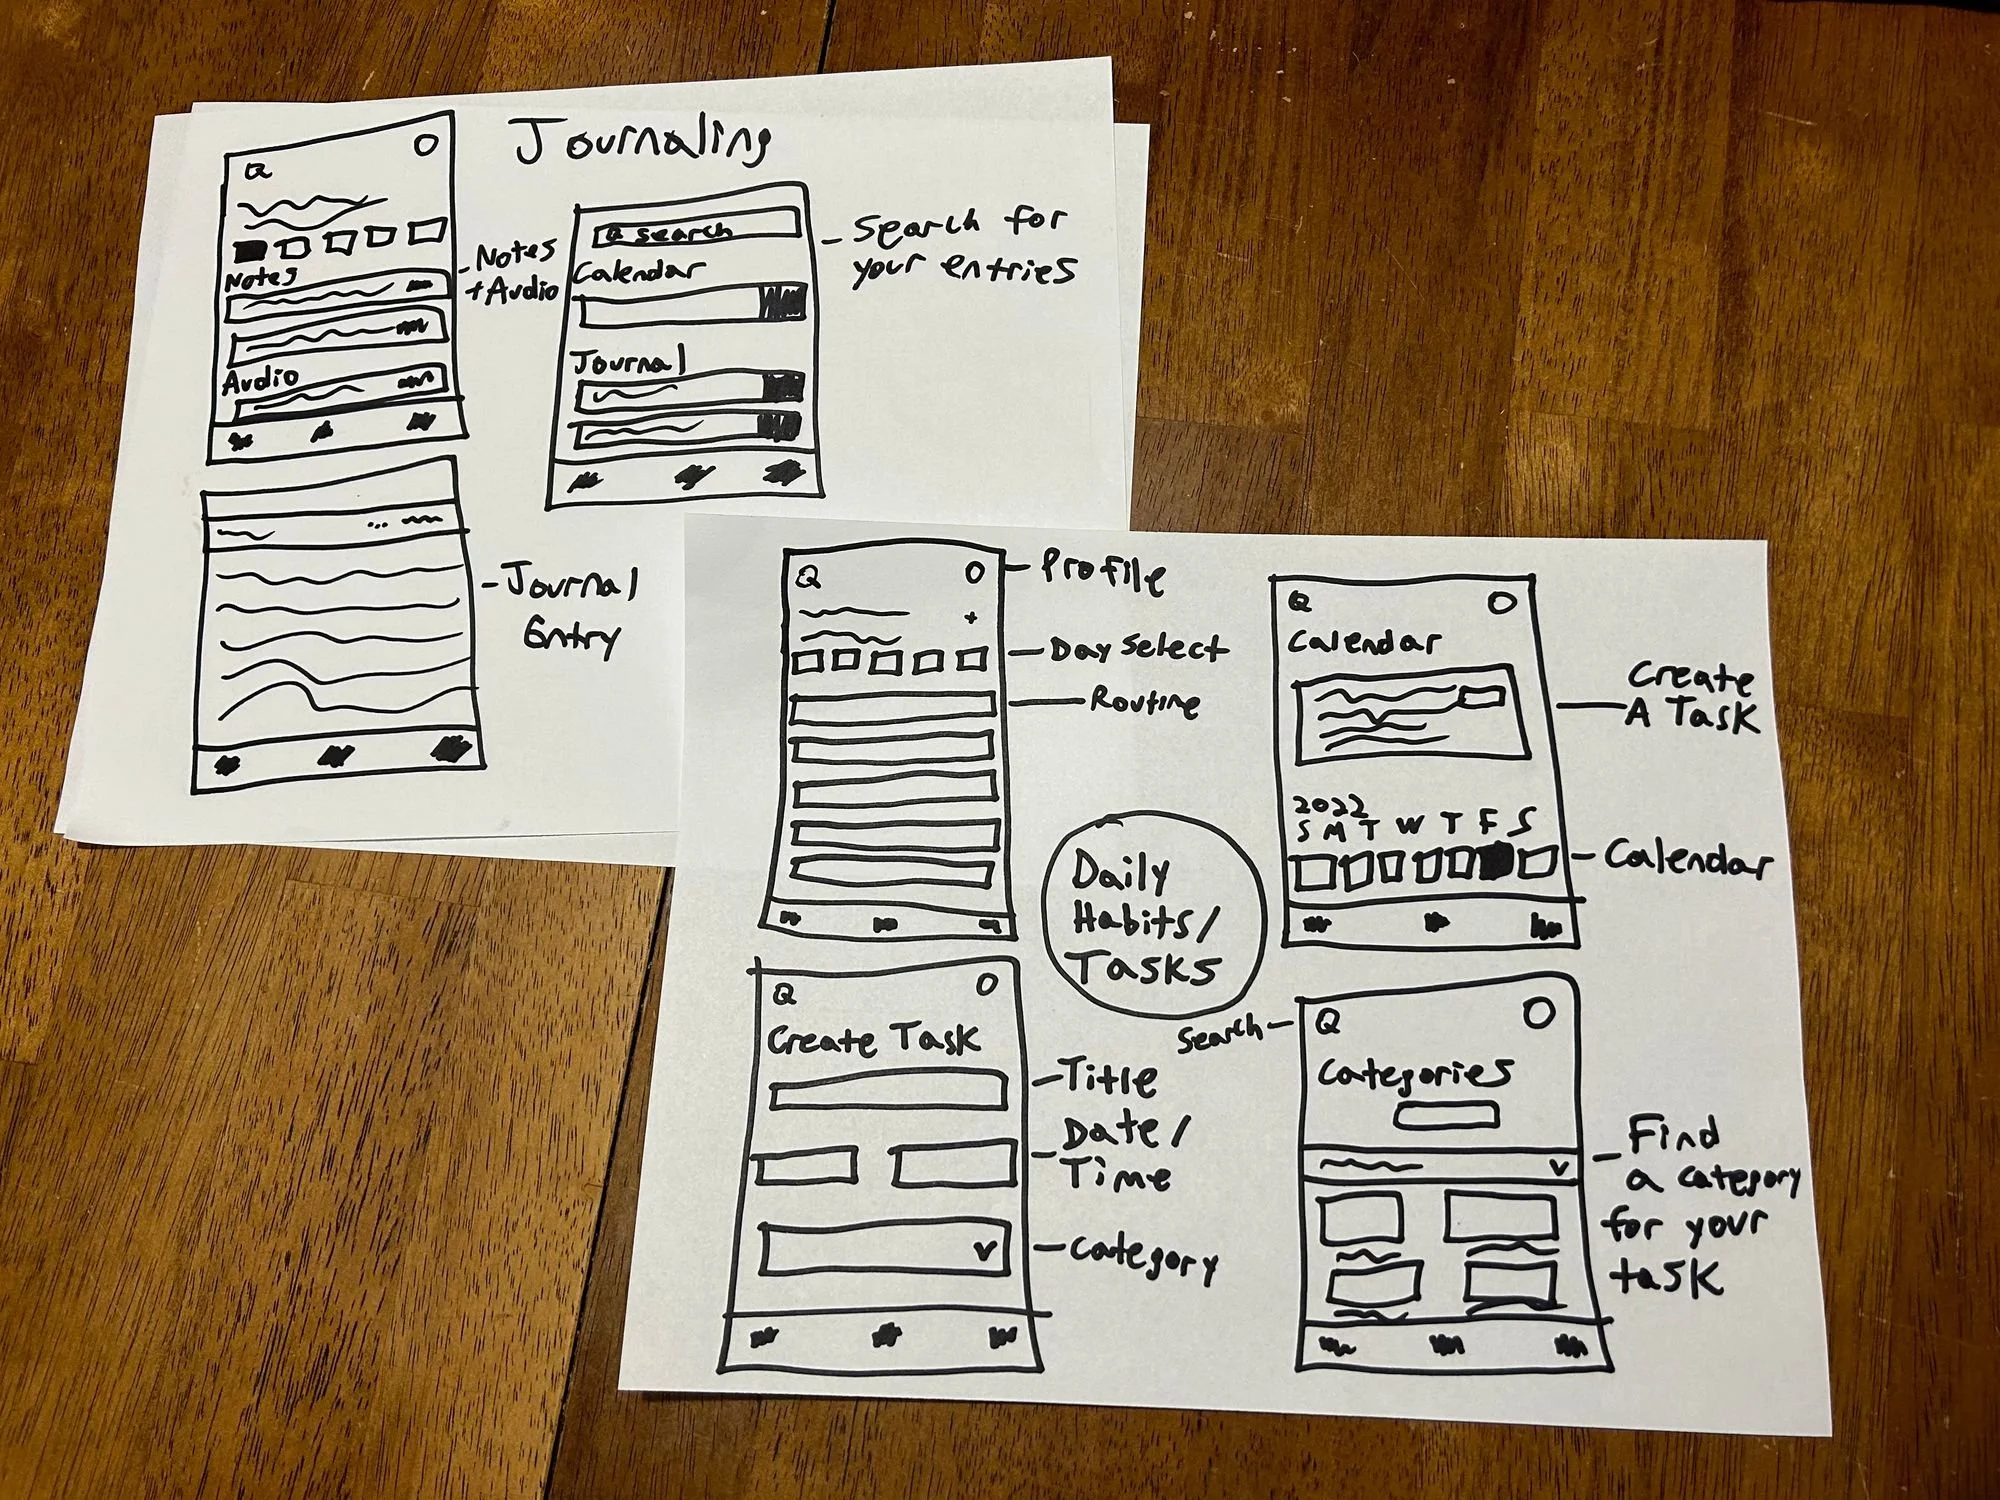 Journaling
Notes
Audio
- Notes
+ Audio
search
Calendar
Journal
- Search for
your entries
...
- Journal
Entry
- Profile
+
- Day select
- Routine
Calendar
2022
S M T W T F S
Create
- A Task
- Calendar
Daily
Habits/
Tasks
Create Task
- Title
Date/
- Time
- Category
Search -
Categories
- Find
a category
for your
task